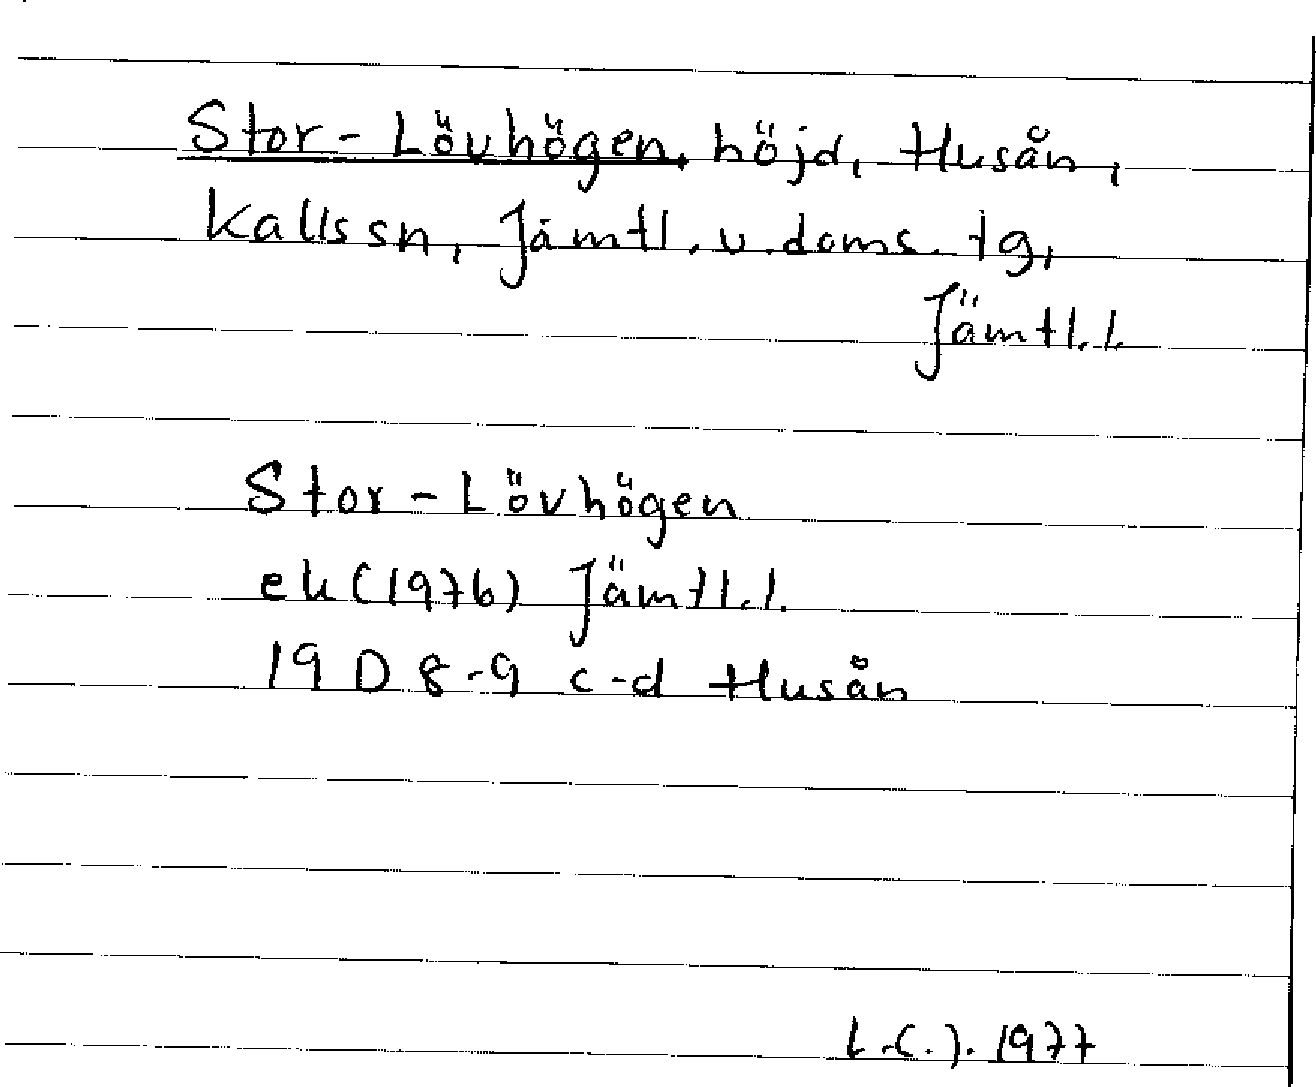 Stor-Lövhögen, höjd, Husån,
Kalls sn, Jämtl. v. doms. tg,
Jämtl. l.
Stor-Lövhögen
ek (1976) Jämtl. l.
19 D 8-9 c-d Husån
1977